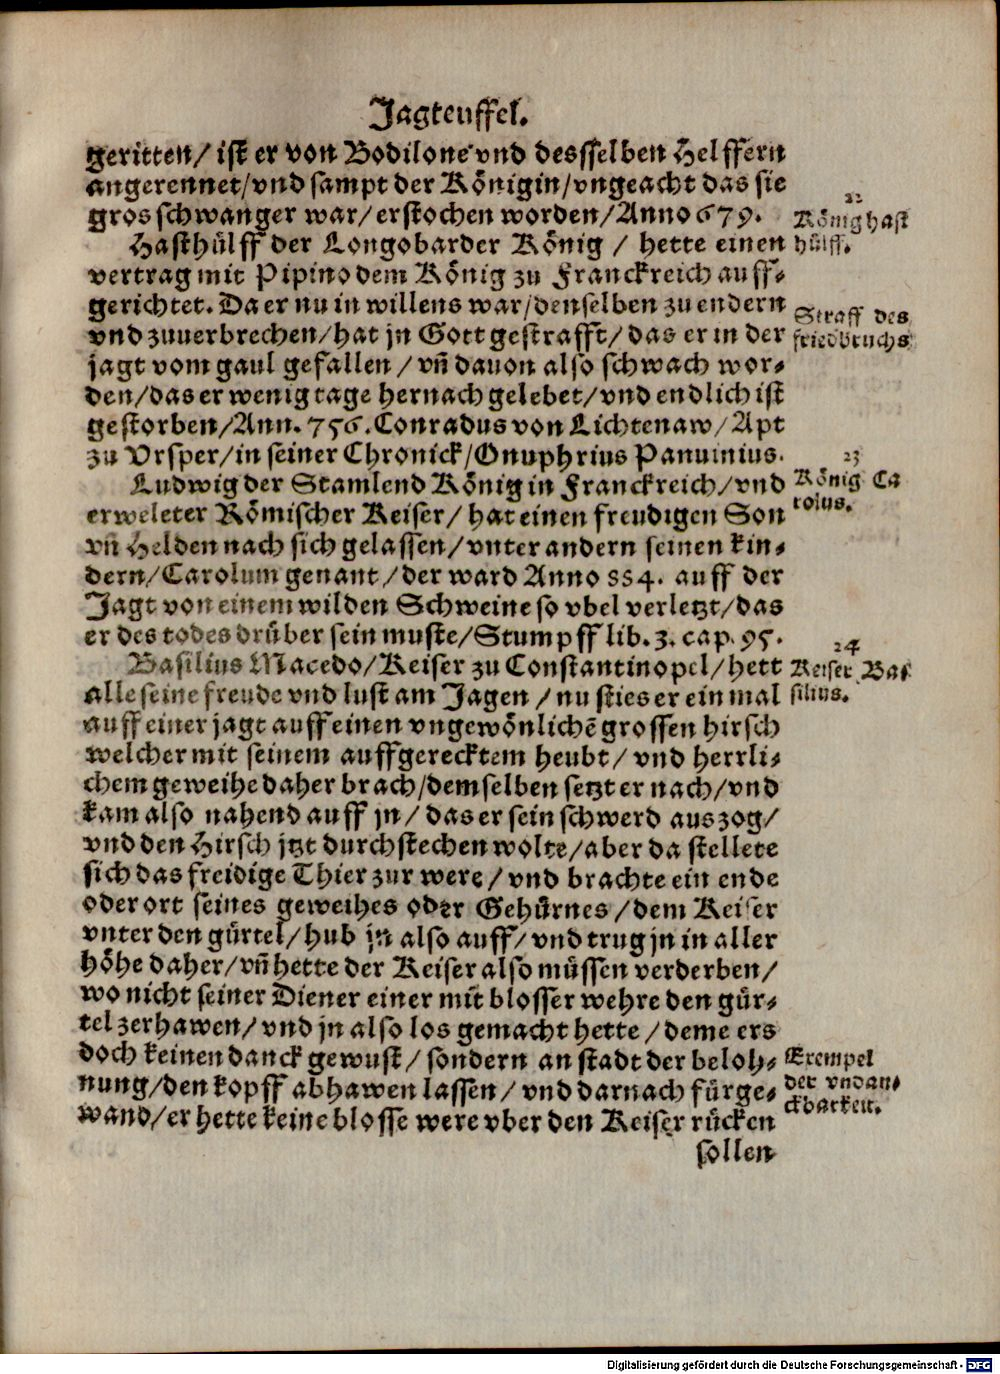 Jagteuffel.
geritten/ ist er von Bodilone vnd desselben Helffern
angerennet/vnd sampt der Königin/vngeacht das sie
gros schwanger war/ erstochen worden/Anno 679.
22
König hast
hülff.
Hasthülff der Longobarder König / hette einen
vertrag mit Pipino dem König zu Franckreich auff-
gerichtet. Da er nu in willens war/denselben zu endern
vnd zuuerbrechen/hat jn Gott gestrafft/ das er in der
Straff des
friedbruchs
jagt vom gaul gefallen / vñ dauon also schwach wor-
den/das er wenig tage hernach gelebet/vnd endlich ist
gestorben/Ann. 756. Conradus von Lichtenaw/ Apt
zu Vrsper/in seiner Chronick/Onuphrius Panuinius.
23
König Ca
rolus.
Ludwig der Stamlend König in Franckreich/vnd
erweleter Römischer Keiser/ hat einen freudigen Son
vñ Helden nach sich gelassen/vnter andern seinen kin-
dern/Carolum genant/der ward Anno 884. auff der
Jagt von einem wilden Schweine so vbel verletzt/das
er des todes drüber sein muste/Stumpff lib. 3. cap. 95.
24
Keiser Bas
silius.
Basilius Macedo/Keiser zu Constantinopel/hett
alle seine freude vnd lust am Jagen / nu sties er ein mal
auff einer jagt auff einen vngewönlichē grossen hirsch
welcher mit seinem auffgerecktem heubt/ vnd herrli-
chem geweihe daher brach/demselben setzt er nach/vnd
kam also nahend auff jn/ das er sein schwerd auszog/
vnd den Hirsch jtzt durchstechen wolte/aber da stellete
sich das freidige Thier zur were/ vnd brachte ein ende
oder ort seines geweihes oder Gehürnes/dem Keiser
vnter den gürtel/hub jn also auff/vnd trug jn in aller
höhe daher/vñ hette der Keiser also müssen verderben/
wo nicht seiner Diener einer mit blosser wehre den gür-
tel zerhawen/vnd jn also los gemacht hette/deme ers
doch keinen danck gewust/ sondern an stadt der beloh-
Exempel
der vndan-
ckbarkeit.
nung/den kopff abhawen lassen/ vnd darnach fürge-
wand/er hette keine blosse were vber den Keiser rücken
sollen
Digitalisierung gefördert durch die Deutsche Forschungsgemeinschaft - DFG